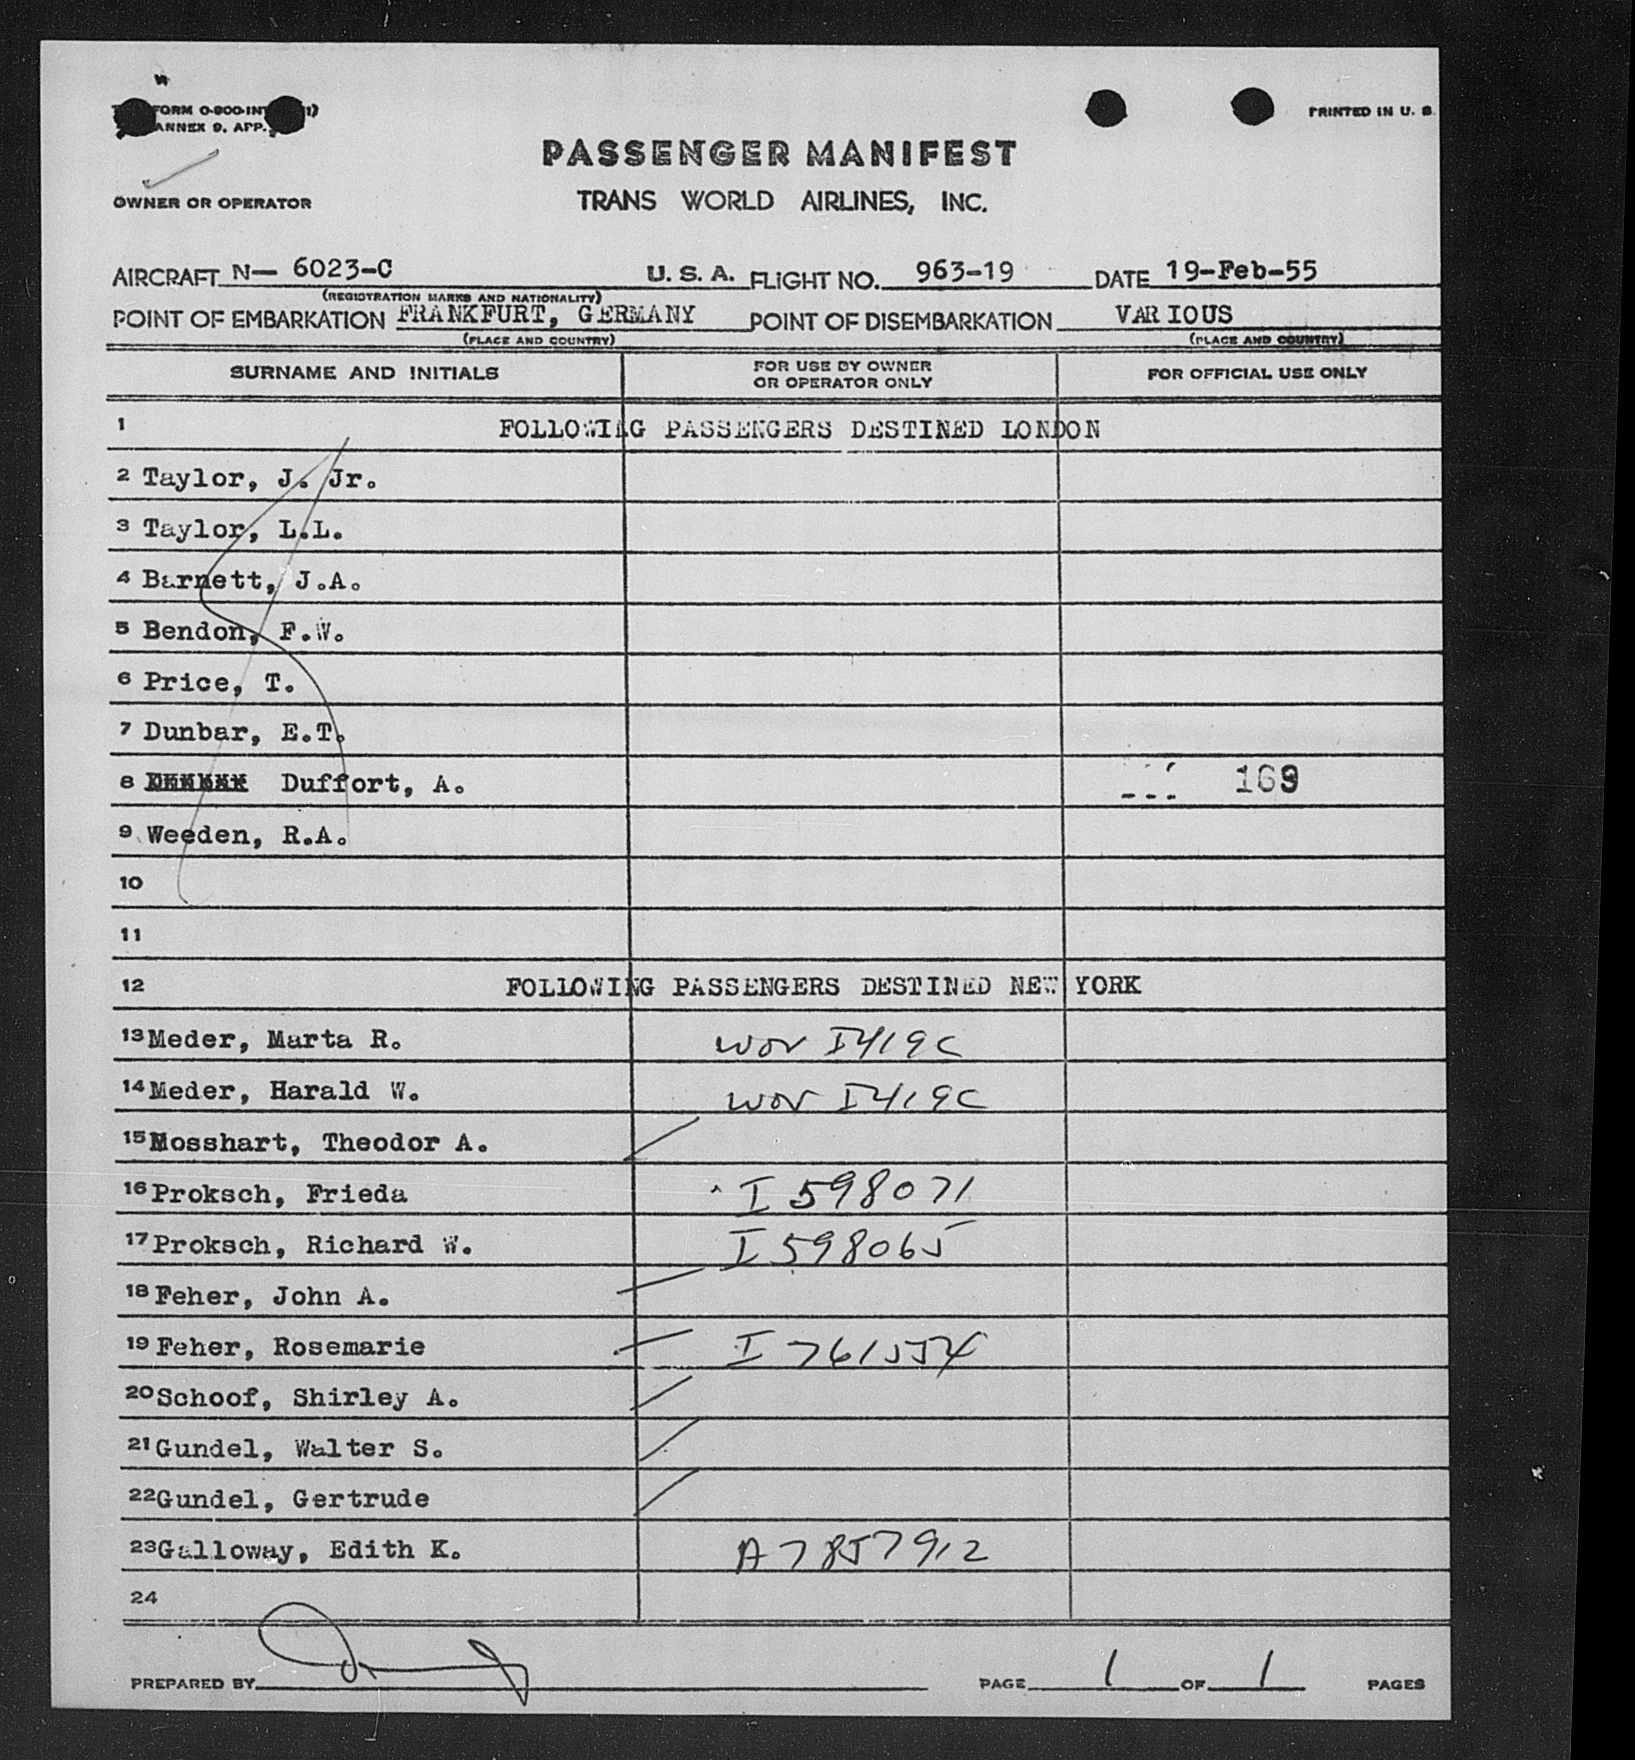 FORM 0-800-INT 1)
ANNEX 9, APP.
PRINTED IN U. S.
PASSENGER MANIFEST
OWNER OR OPERATOR TRANS WORLD AIRLINES, INC.
AIRCRAFT N— 6023-C U. S. A. FLIGHT NO. 963-19 DATE 19-Feb-55
(REGISTRATION MARKS AND NATIONALITY)
POINT OF EMBARKATION FRANKFURT, GERMANY POINT OF DISEMBARKATION VARIOUS
(PLACE AND COUNTRY) (PLACE AND COUNTRY)
SURNAME AND INITIALS FOR USE BY OWNER OR OPERATOR ONLY FOR OFFICIAL USE ONLY
1 FOLLOWING PASSENGERS DESTINED LONDON
2 Taylor, J. Jr.
3 Taylor, L.L.
4 Barnett, J.A.
5 Bendon, F.W.
6 Price, T.
7 Dunbar, E.T.
8 Duffort, A. 169
9 Weeden, R.A.
10
11
12 FOLLOWING PASSENGERS DESTINED NEW YORK
13 Meder, Marta R. WOV I419C
14 Meder, Harald W. WOV I419C
15 Mosshart, Theodor A.
16 Proksch, Frieda I 598071
17 Proksch, Richard W. I 598065
18 Feher, John A.
19 Feher, Rosemarie I 761554
20 Schoof, Shirley A.
21 Gundel, Walter S.
22 Gundel, Gertrude
23 Galloway, Edith K. A7857912
24
PREPARED BY PAGE 1 OF 1 PAGES